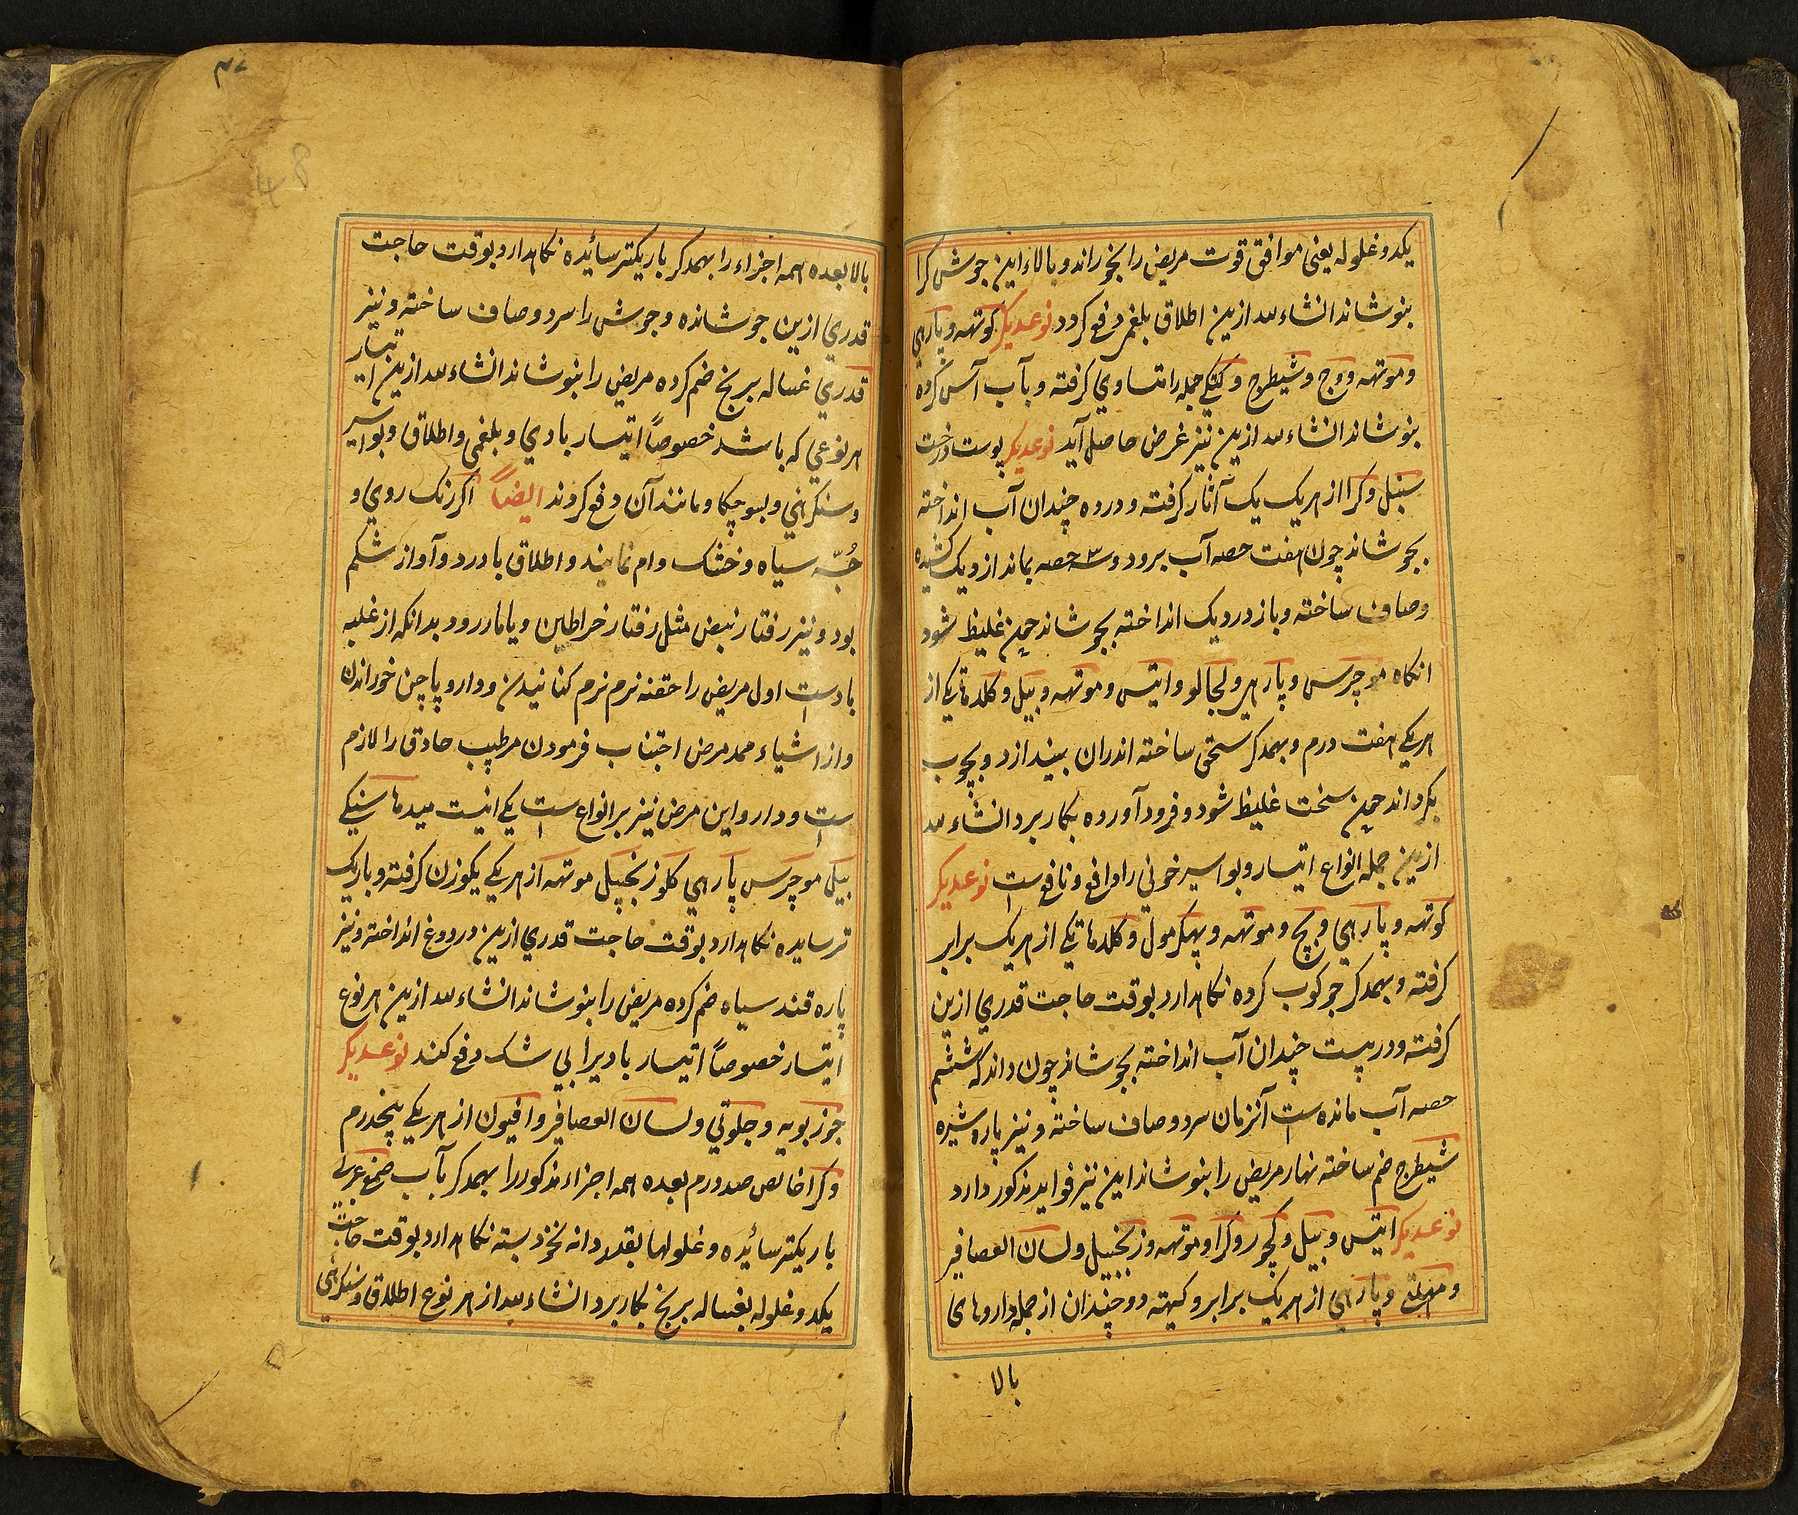 یکدو غلوله یعنی موافق قوت مریض را بخوراند و بالاء این جوش کرا
بنوشاند انشاء الله ازین اطلاق بلغمی دفع کردد نوعدیکر کوتهه و پارهي
و موتهه و وج و شیطرج و کتکی جمله را متساوي کرفته و بآب آس کرده
بنوشاند انشاء الله ازین نیز غرض حاصل آید نوعدیکر پوست درخت
سنبل و کرا از هریک یک آثار کرفته و در ده چندان آب انداخته
بجوشاند چون هفت حصه آب برود و سه حصه بماند از دیک کشیده
و صاف ساخته و باز در دیک انداخته بجوشاند چون غلیظ شود
انکاه موچرس و پارهي و لجالو و اتیس و موتهه و بیل و کلدهاتکی از
هریکی هفت درم و بهمدکر سختی ساخته اندران بیندازد و بچوب
بکرداند چون سخت غلیظ شود و فرود آورده بکار برد انشاء الله
ازین جمله انواع اتیسار و بواسیر خونی را دافع و نافع است نوعدیکر
کوتهه و پارهي و بچ و موتهه و پهکرمول و کلدهاتکی از هریک برابر
کرفته و بهمدکر جوکوب کرده نکاهدارد بوقت حاجت قدري ازین
کرفته و در بیست چندان آب انداخته بجوشاند چون داند که ششم
حصه آب مانده است آنزمان سرد و صاف ساخته و نیز پاره شیره
شیطرج ضم ساخته نهار مریض را بنوشاند این نیز فواید مذکور دارد
نوعدیکر اتیس و بیل و کچور و کرا و موتهه و زنجبیل و لسان العصافیر
و پارهي از هریک برابر و کیهته دوچندان از جمله داروهای
بالا
۴۸
48
بالا بعده همه اجزاء را بهمدکر باریکتر سائیده نکاهدارد بوقت حاجت
قدري ازین جوشانده و جوش را سرد و صاف ساخته و نیز
قدري غساله برنج ضم کرده مریض را بنوشاند انشاء الله ازین اتیسار
هر نوعي که باشد خصوصاً اتیسار بادي و بلغمی و اطلاق و بواسیر
و سنکرهني و بسوچکا و مانند آن دفع کردند ایضاً اکر رنک روي و
جُثّه سیاه و خشک وام نمایند و اطلاق با درد و آواز شکم
بود و نیز رفتار نبض مثل رفتار خراطین و یا مار رود بدانکه از غلبه
باد است اول مریض را حقنه نرم نرم کنانیدن و دارو پاچن خوراندن
و از اشیاء ممد مرض اجتناب فرمودن مر طبیب حاذق را لازم
است و دارو این مرض نیز بر انواع است یکی اینست میدهاسنکی
بیل موچرس پارهي کلو زنجبیل موتهه از هریکی یکوزن کرفته و باریک
تر سایده نکاهدارد بوقت حاجت قدري ازین در دوغ انداخته و نیز
پاره قند سیاه ضم کرده مریض را بنوشاند انشاء الله ازین هر نوع
اتیسار خصوصاً اتیسار بادیرا بی شک دفع کند نوعدیکر
جوزبویه و جلوتي و لسان العصافیر و افیون از هریکی پنجدرم
و کرا خالص صد درم بعده همه اجزاء مذکور را بهمدکر بآب صمغ عربی
باریکتر سائیده و غلولها بقدر دانه نخود بسته نکاهدارد بوقت حاجت
یکدو غلوله بغساله برنج بکار برد انشاء الله از هر نوع اطلاق و سنکرهني